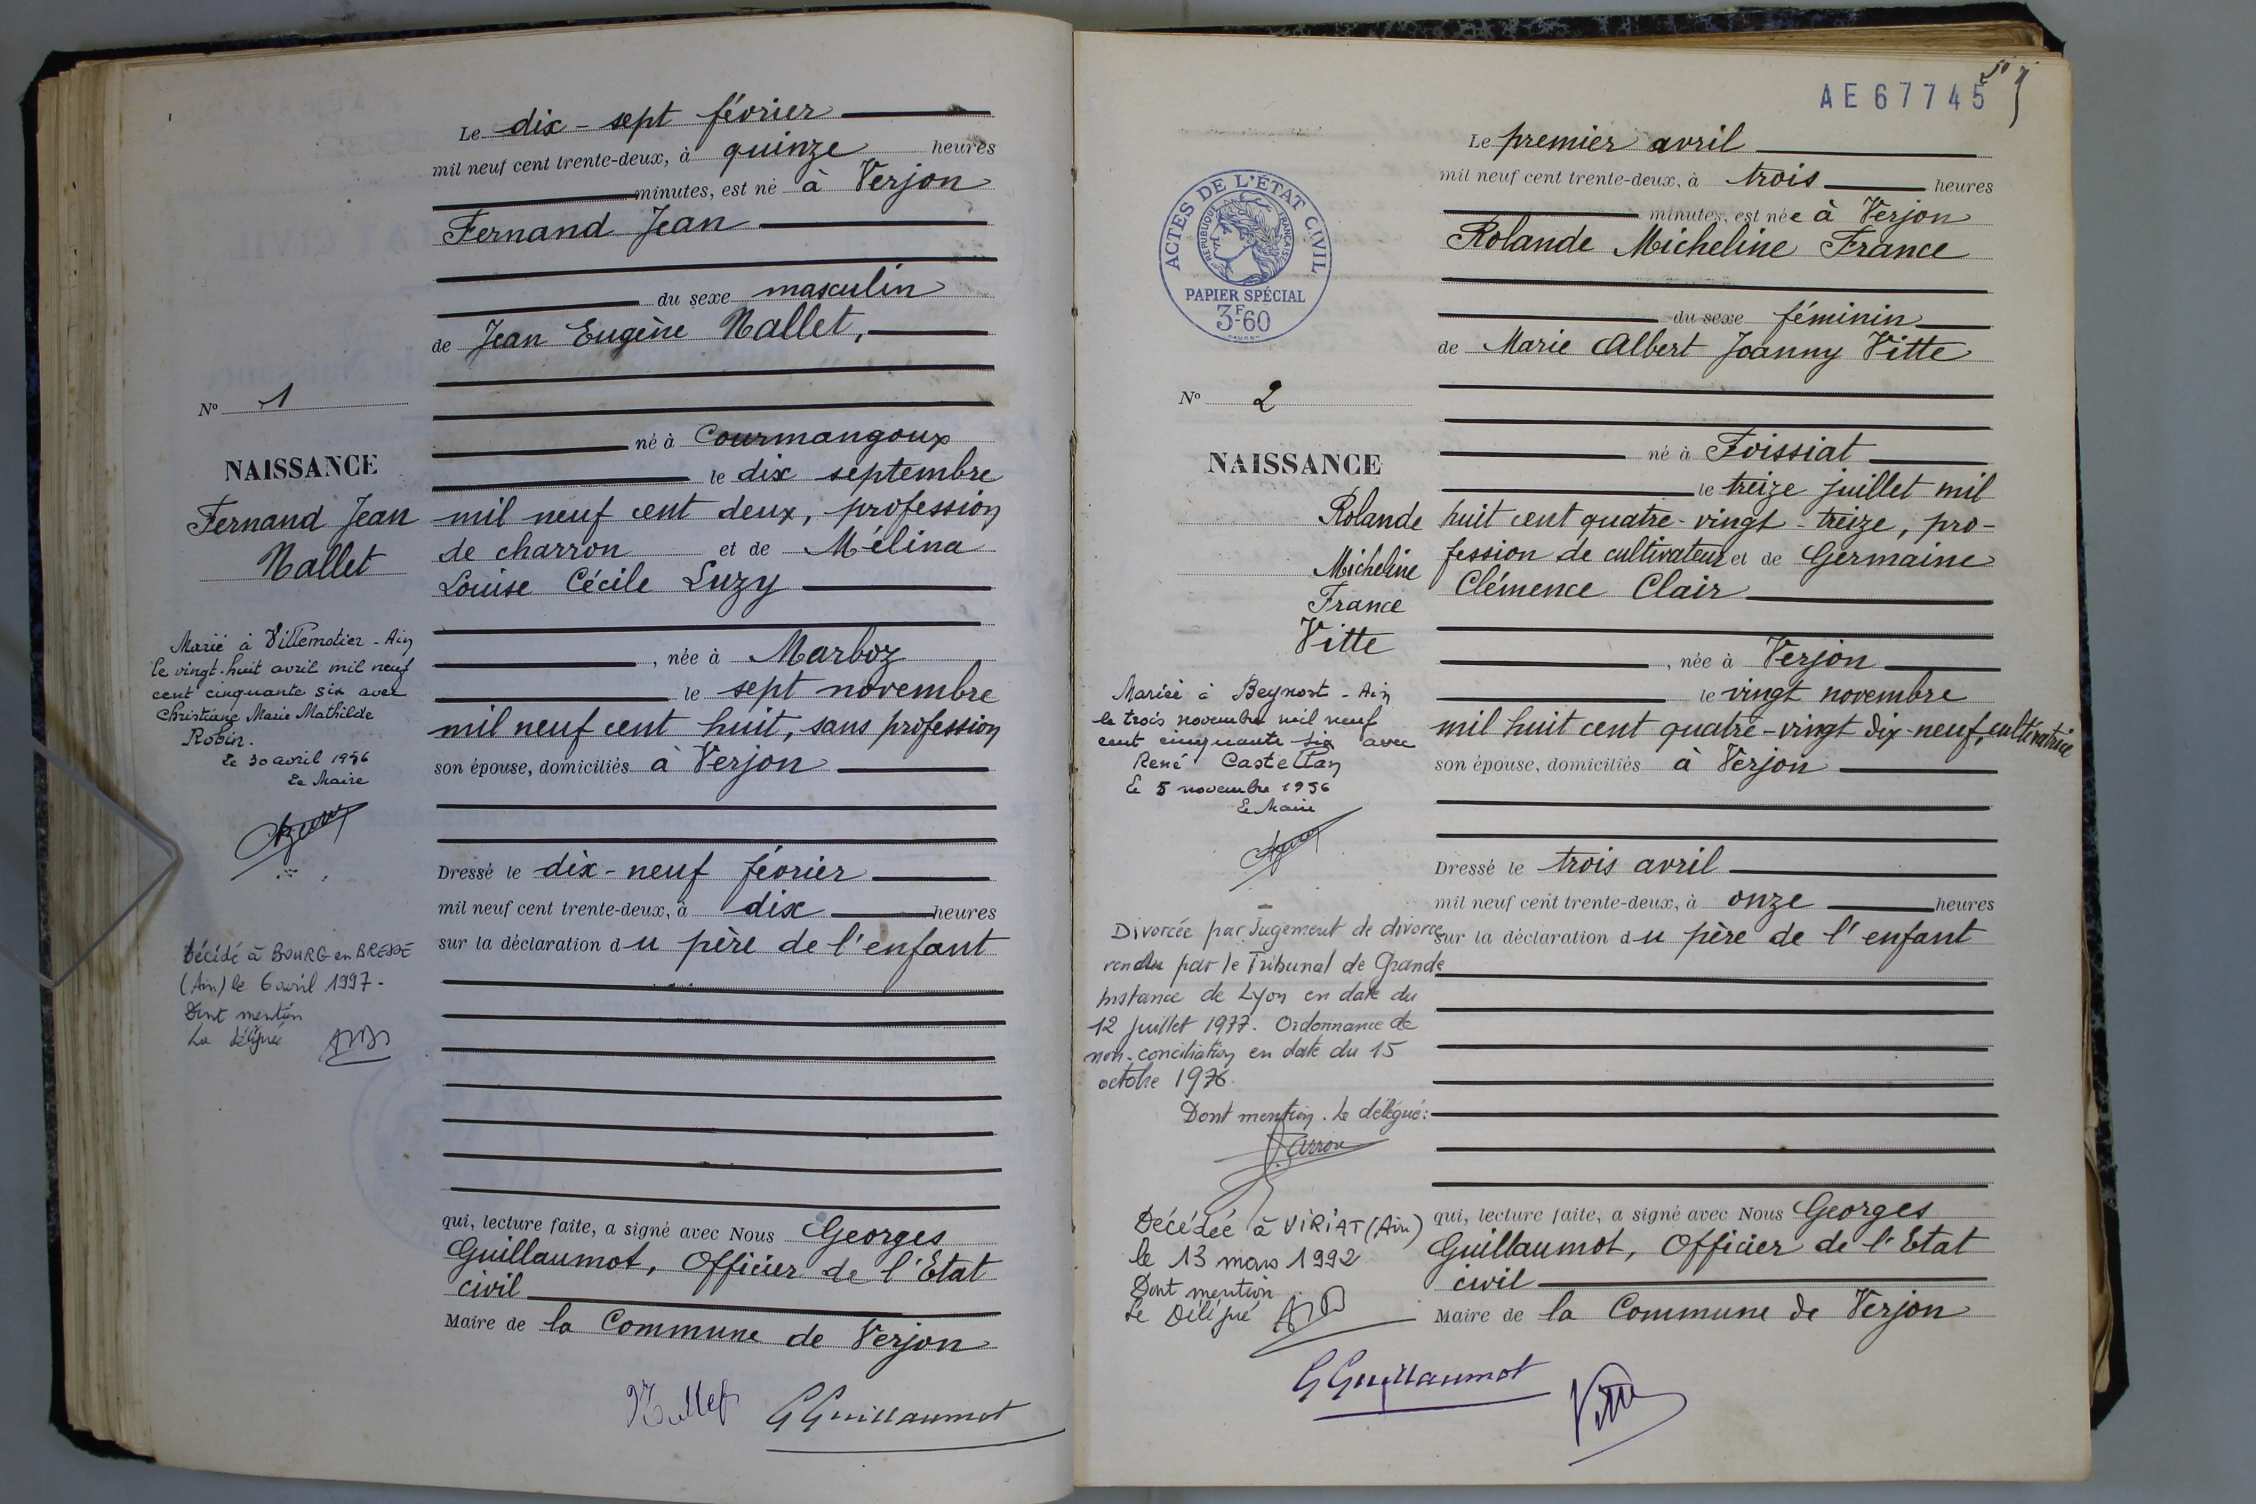 Le dix-sept février
mil neuf cent trente-deux, à quinze heures
minutes, est né à Verjon
Fernand Jean
du sexe masculin
de Jean Eugène Nallet,
né à Courmangoux
le dix septembre
mil neuf cent deux, profession
de charron et de Mélina
Louise Cécile Luzy
, née à Marboz
le sept novembre
mil neuf cent huit, sans profession
son épouse, domiciliés à Verjon
Dressé le dix-neuf février
mil neuf cent trente-deux, à dix heures
sur la déclaration du père de l'enfant
qui, lecture faite, a signé avec Nous Georges
Guillaumot, Officier de l'Etat
civil
Maire de la Commune de Verjon
Nallet GGuillaumot
No 1
NAISSANCE
Fernand Jean
Nallet
Marié à Villemotier - Ain
le vingt-huit avril mil neuf
cent cinquante six avec
Christiane Marie Mathilde
Robin.
Le 30 avril 1956
Le Maire
Décédé à BOURG en BRESSE
(Ain) le 6 avril 1997 -
Dont mention
La déléguée
AE67745
Le premier avril
mil neuf cent trente-deux, à trois heures
minutes, est née à Verjon
Rolande Micheline France
du sexe féminin
de Marie Albert Joanny Vitte
né à Foissiat
le treize juillet mil
huit cent quatre-vingt-treize, pro-
fession de cultivateur et de Germaine
Clémence Clair
, née à Verjon
le vingt novembre
mil huit cent quatre-vingt dix-neuf, cultivatrice
son épouse, domiciliés à Verjon
Dressé le trois avril
mil neuf cent trente-deux, à onze heures
sur la déclaration du père de l'enfant
qui, lecture faite, a signé avec Nous Georges
Guillaumot, Officier de l'Etat
civil
Maire de la Commune de Verjon
GGuillaumot Vitte
ACTES DE L'ÉTAT CIVIL
RÉPUBLIQUE FRANÇAISE
PAPIER SPÉCIAL
3F60
No 2
NAISSANCE
Rolande
Micheline
France
Vitte
Mariée à Beynost - Ain
le trois novembre mil neuf
cent cinquante six avec
René Castellan
Le 5 novembre 1956
Le Maire
Divorcée par Jugement de divorce
rendu par le Tribunal de Grande
Instance de Lyon en date du
12 juillet 1977. Ordonnance de
non-conciliation en date du 15
octobre 1976.
Dont mention. Le délégué:
Décédée à VIRIAT (Ain)
le 13 mars 1992
Dont mention
Le Délégué